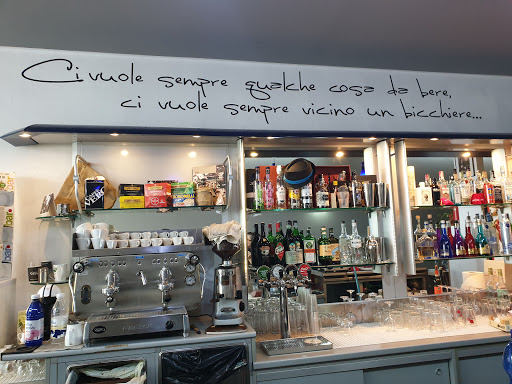 Ci vuole sempre qualche cosa da bere,
ci vuole sempre vicino un bicchiere...